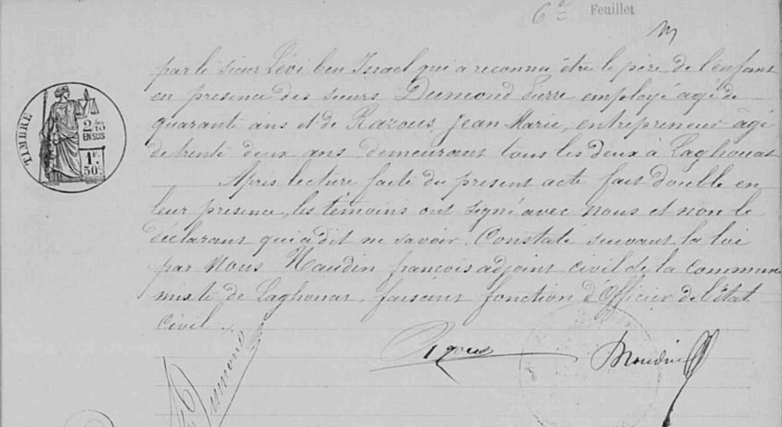 6e Feuillet
par le sieur Lévi ben Israel qui a reconnu être le père de l'enfant
en présence des sieurs Dumond Pierre employé agé de
quarante ans et de Razous Jean Marie, entrepreneur âgé
de trente deux ans demeurant tous les deux à Laghouat
Après lecture faite du présent acte fait double en
leur présence, les témoins ont signé avec nous et non le
déclarant qui a dit ne savoir. Constaté suivant la loi
par Nous Naudin françois adjoint civil de la Commune
mixte de Laghouat, faisant fonction d'Officier de l'état
civil.
TIMBRE
EN SUS
1F
50c
Dumond